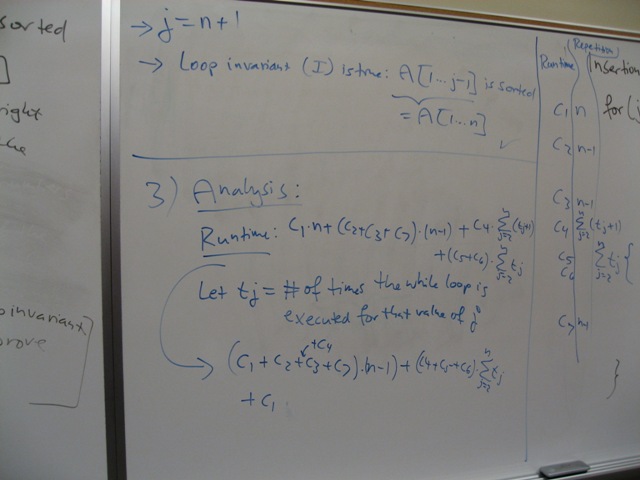 sorted
]
right
the
invariant
prove
→ j = n+1
→ Loop invariant (I) is true: A[1...j-1] is sorted
= A[1...n]
✓
3) Analysis:
Runtime: C1·n + (C2+C3+C7)·(n-1) + C4·∑_{j=2}^{n}(tj+1)
+(C5+C6)·∑_{j=2}^{n} tj
Let tj = # of times the while loop is
executed for that value of j
+C4
→ (C1 + C2 + C3 + C7)·(n-1) + (C4+C5+C6)·∑_{j=2}^{n} tj
+ C1
Runtime Repetition Insertion
C1 n for (j
C2 n-1
C3 n-1
C4 ∑_{j=2}^{n}(tj+1)
C5 ∑_{j=2}^{n} tj {
C6
C7 n-1
}